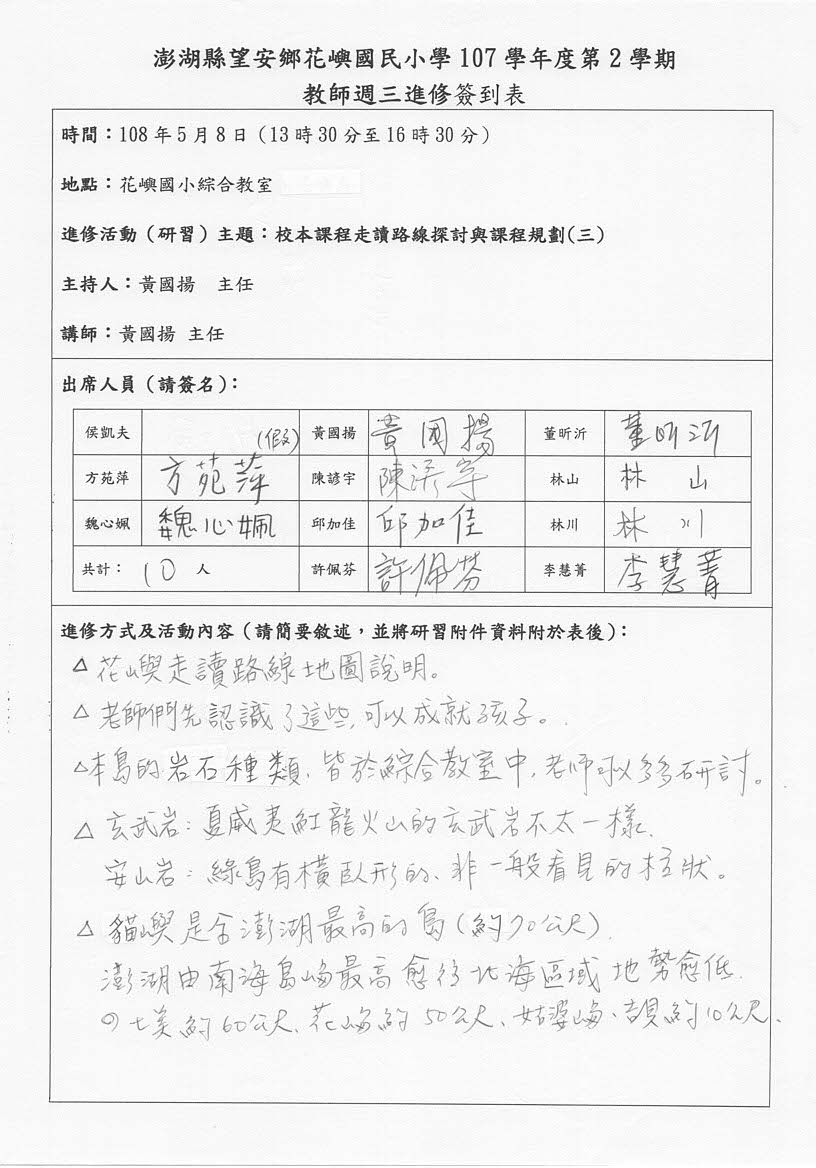 澎湖縣望安鄉花嶼國民小學 107 學年度第 2 學期
教師週三進修簽到表
時間：108 年 5 月 8 日（13 時 30 分至 16 時 30 分）
地點：花嶼國小綜合教室
進修活動（研習）主題：校本課程走讀路線探討與課程規劃(三)
主持人：黃國揚 主任
講師：黃國揚 主任
出席人員（請簽名）：
侯凱夫 (假) 黃國揚 黃國揚 董昕沂 董昕沂
方苑萍 方苑萍 陳諺宇 陳諺宇 林山 林山
魏心姵 魏心姵 邱加佳 邱加佳 林川 林川
共計： 10 人 許佩芬 許佩芬 李慧菁 李慧菁
進修方式及活動內容（請簡要敘述，並將研習附件資料附於表後）：
△ 花嶼走讀路線地圖說明。
△ 老師們先認識了這些，可以成就孩子。
△ 本島的岩石種類，皆於綜合教室中，老師可以多多研討。
△ 玄武岩：夏威夷紅龍火山的玄武岩不太一樣、
安山岩：綠島有橫臥形的、非一般看見的柱狀。
△ 貓嶼是全澎湖最高的島（約70公尺）
澎湖由南海島嶼最高愈往北海區域地勢愈低、
七美約60公尺、花嶼約50公尺、姑婆嶼、吉貝約10公尺、